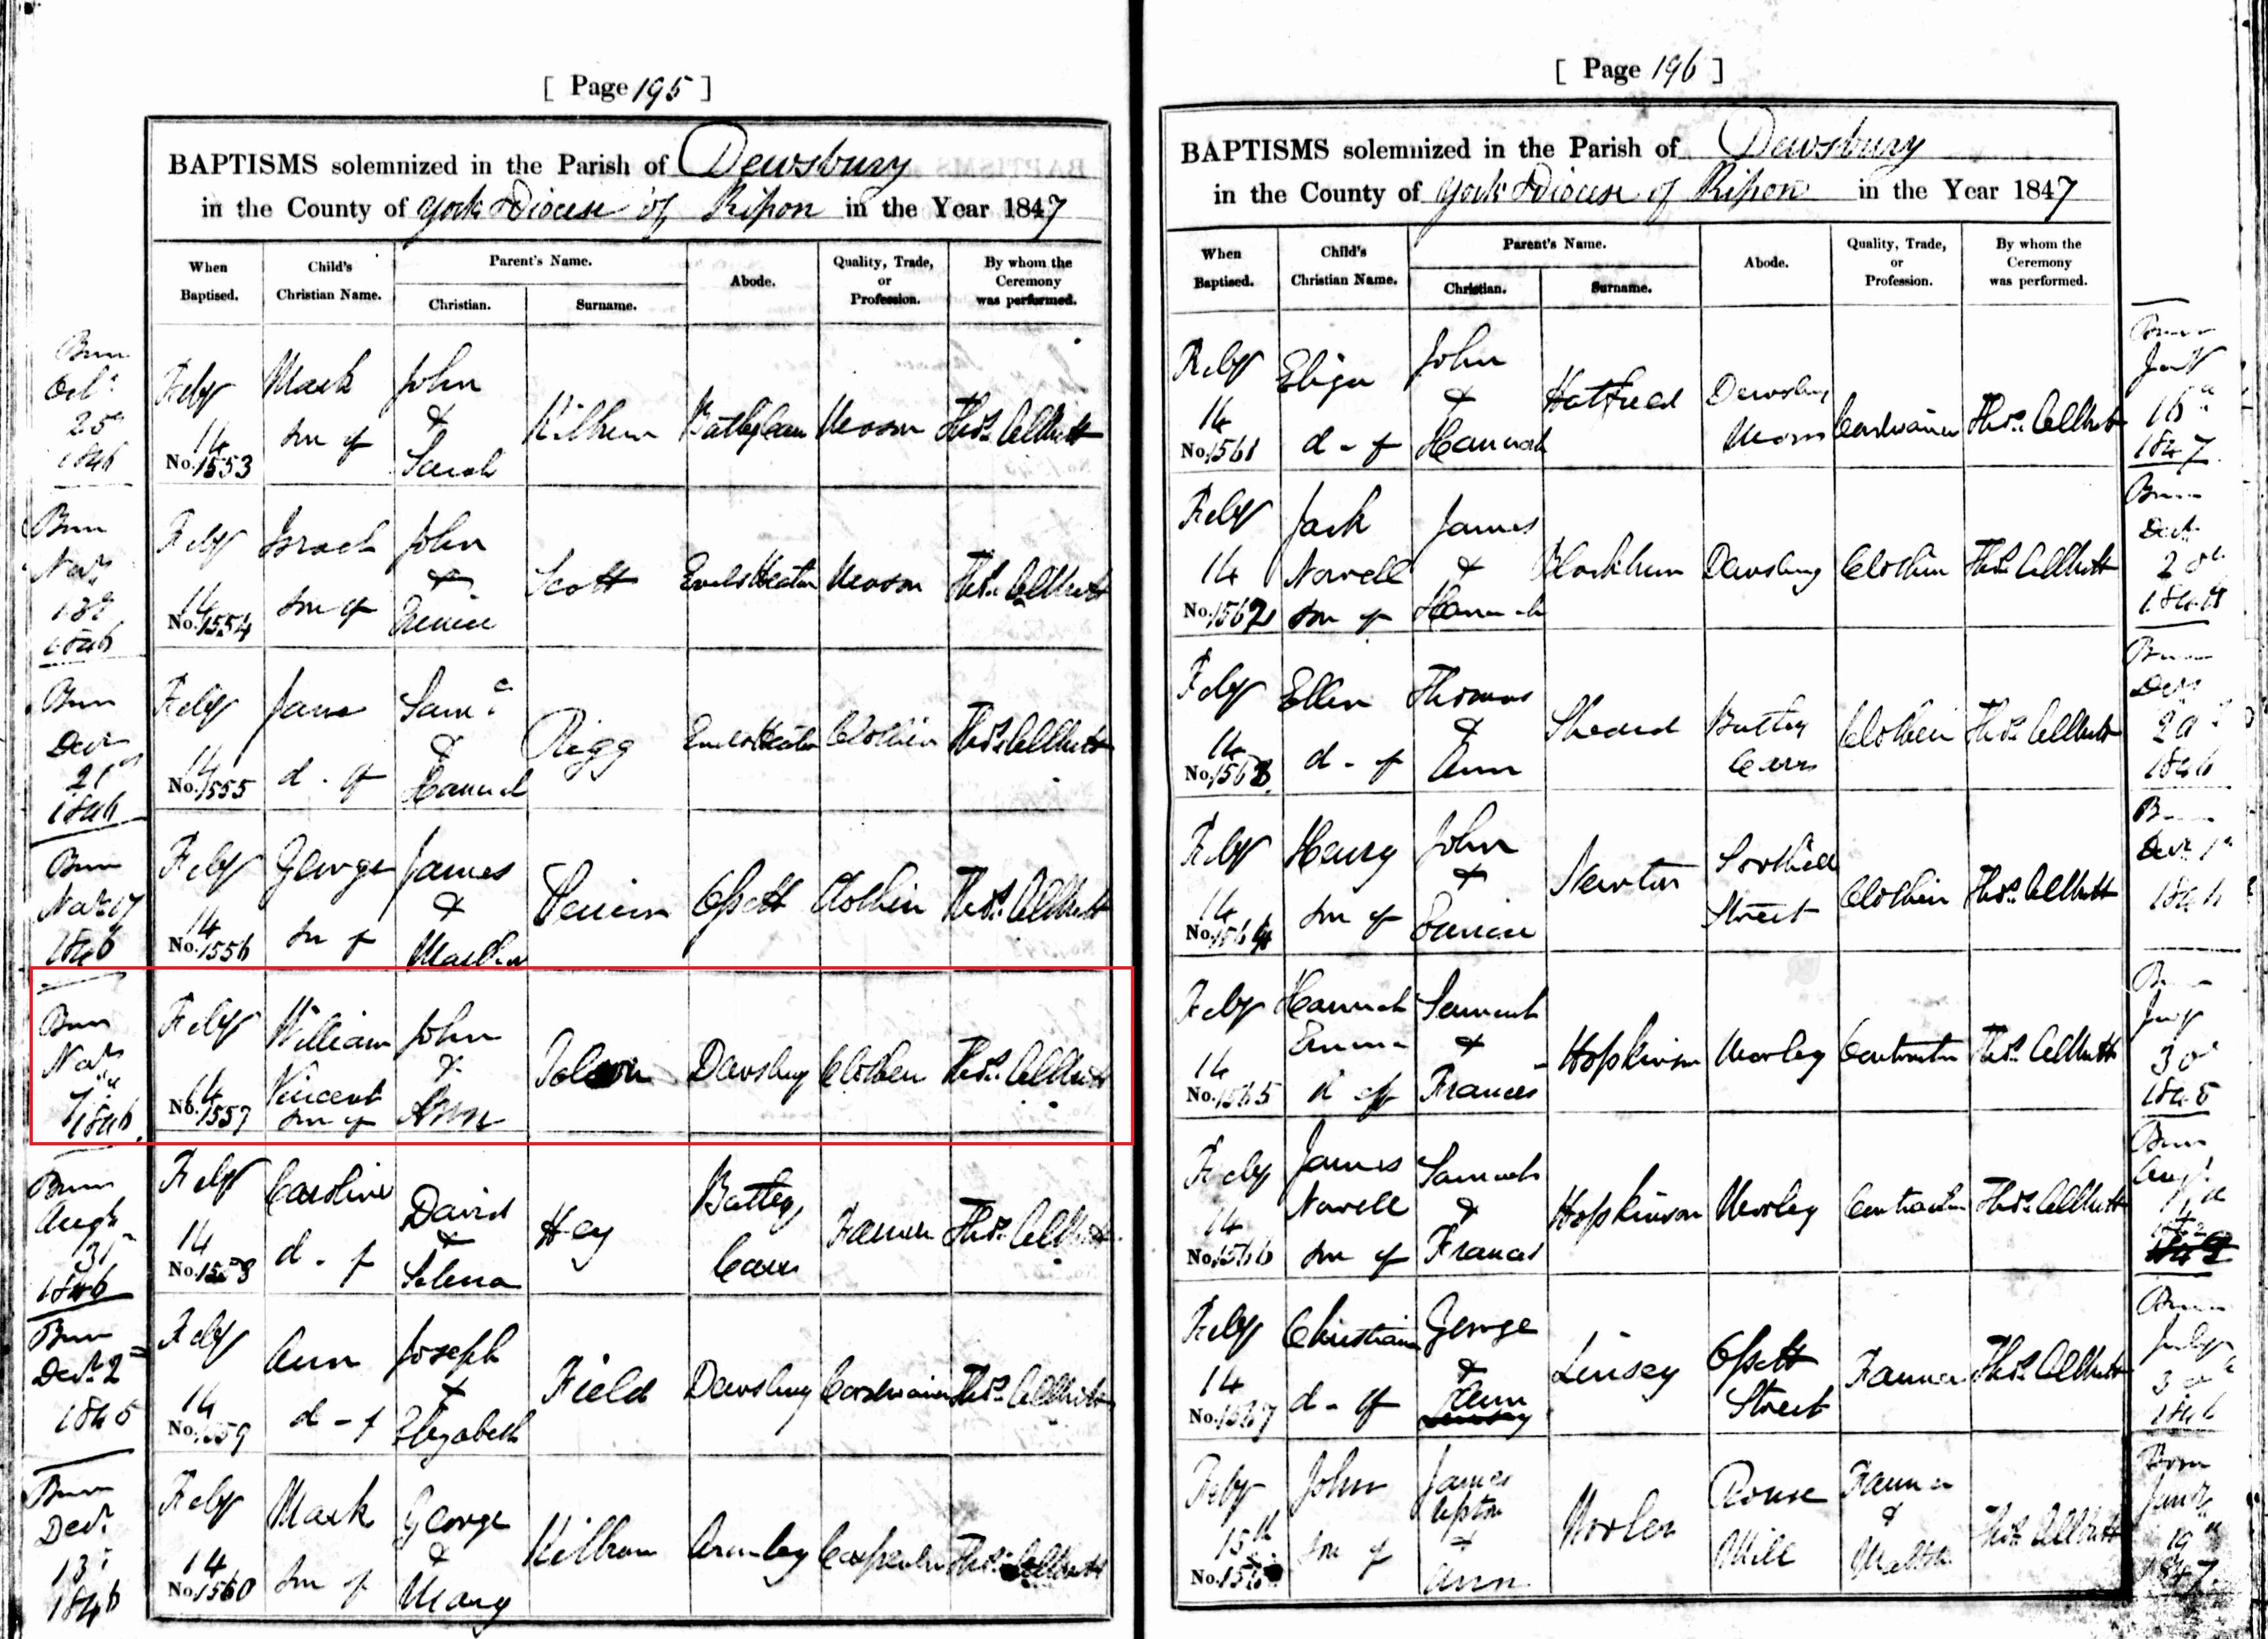 [ Page 195 ]
BAPTISMS solemnized in the Parish of Dewsbury
in the County of York & Diocese of Ripon in the Year 1847
When Baptised.
Child's Christian Name.
Parent's Name.
Christian.
Surname.
Abode.
Quality, Trade, or Profession.
By whom the Ceremony was performed.
Born Octr 25 1846
Feby 14 No. 1553
Mark son of
John & Sarah
Mason
Thos. Allbutt
Born Novr 13 1846
Feby 14 No. 1554
Israel son of
John &
Scott
Earlsheaton
Mason
Thos. Allbutt
Born Decr 21 1846
Feby 14 No. 1555
Jane d. of
Saml & Hannah
Rigg
Earlsheaton
Clothier
Thos. Allbutt
Born Novr 17 1846
Feby 14 No. 1556
George son of
James & Martha
Ossett
Clothier
Thos. Allbutt
Born Novr 7 1846
Feby 14 No. 1557
William Vincent son of
John & Ann
Dewsbury
Clothier
Thos. Allbutt
Born Augt 31 1846
Feby 14 No. 1558
Caroline d. of
David & Selena
Hey
Batley Carr
Farmer
Thos. Allbutt
Born Decr 2 1845
Feby 14 No. 1559
Ann d - of
Joseph & Elizabeth
Field
Dewsbury
Cordwainer
Thos. Allbutt
Born Decr 13 1846
Feby 14 No. 1560
Mark son of
George & Mary
Thos. Allbutt
[ Page 196 ]
BAPTISMS solemnized in the Parish of Dewsbury
in the County of York & Diocese of Ripon in the Year 1847
When Baptised.
Child's Christian Name.
Parent's Name.
Christian.
Surname.
Abode.
Quality, Trade, or Profession.
By whom the Ceremony was performed.
Feby 14 No. 1561
Eliza d - of
John & Hannah
Hatfield
Dewsbury Moor
Cordwainer
Thos. Allbutt
Born 16 1847
Feby 14 No. 1562
Jack Nowell son of
James & Hannah
Blackburn
Dewsbury
Clothier
Thos. Allbutt
Born
Feby 14 No. 1563
Ellen d - of
Thomas & Ann
Sheard
Batley Carr
Clothier
Thos. Allbutt
Born Decr 1846
Feby 14 No. 1564
Henry son of
John &
Newton
Soothill Street
Clothier
Thos. Allbutt
Decr 1846
Feby 14 No. 1565
Hannah Emma d of
Samuel & Frances
Hopkinson
Morley
Contractor
Thos. Allbutt
30 1845
Feby 14 No. 1566
James Nowell son of
Samuel & Frances
Hopkinson
Morley
Contractor
Thos. Allbutt
Born Augt
Feby 14 No. 1567
Christiana d - of
George & Ann
Linsey
Ossett Street
Farmer
Thos. Allbutt
Born July 1846
Feby 15th
John son of
James Upton & Ann
Mill
Farmer &
Thos. Allbutt
Born 19 1847